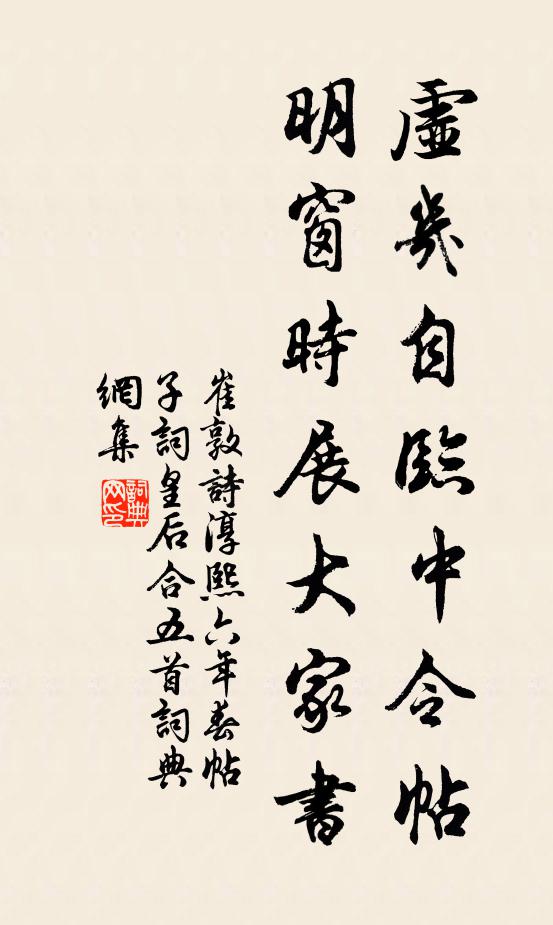 虛幾自臨中令帖
明窗時展大家書
崔敦詩淳熙六年春帖
子詞皇后合五首詞典
網集
詞典網印